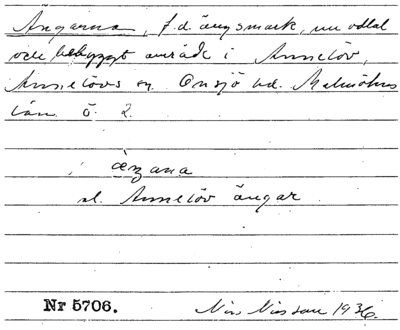 Ängarna, f.d. ängsmark, nu odlat
och bebyggt område i Annelöv,
Annelövs sn. Onsjö hd. Malmöhus
län. ö. 2.
æ̀ŋana
al. Annelöv ängar
Nr 5706.
Nils Nilsson 1936.